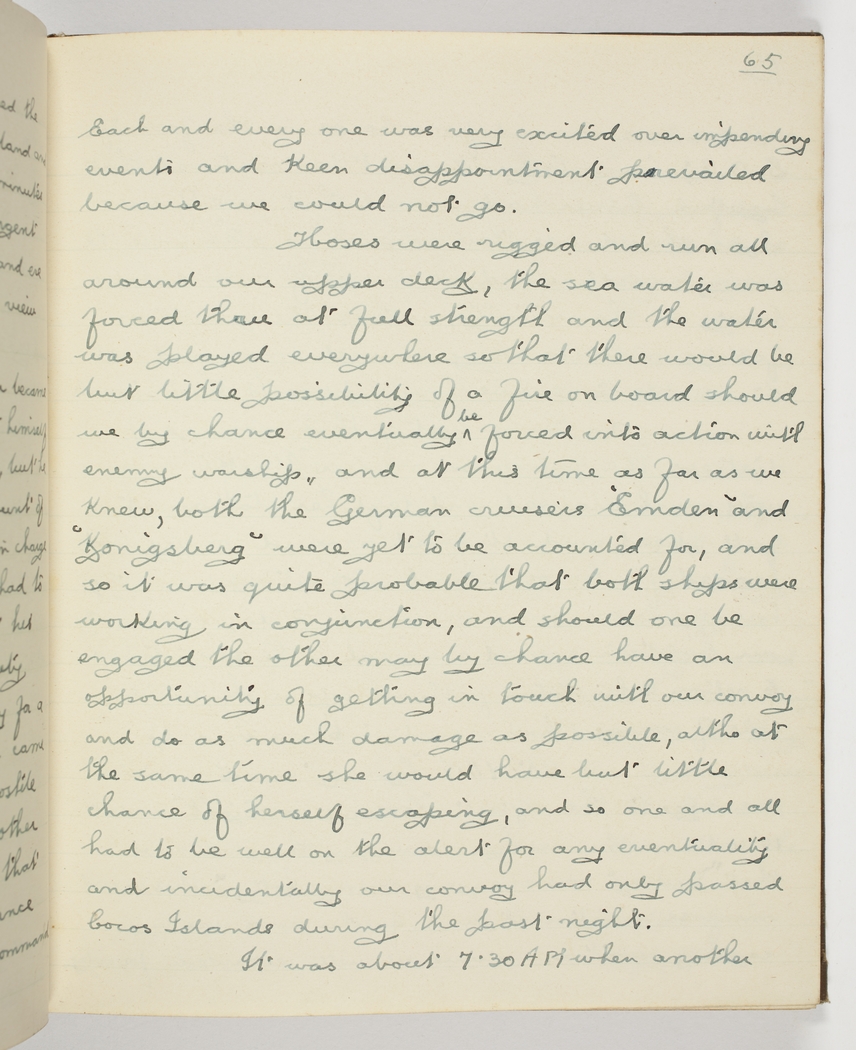 65
Each and every one was very excited over impending
events and keen disappointment prevailed
because we could not go.
Hoses were rigged and run all
around our upper deck, the sea water was
forced thru at full strength and the water
was played everywhere so that there would be
but little possibility of a fire on board should
we by chance eventually be forced into action with
enemy warship,, and at this time as far as we
knew, both the German cruisers "Emden" and
"Konigsberg" were yet to be accounted for, and
so it was quite probable that both ships were
working in conjunction, and should one be
engaged the other may by chance have an
opportunity of getting in touch with our convoy
and do as much damage as possible, altho at
the same time she would have but little
chance of herself escaping, and so one and all
had to be well on the alert for any eventuality
and incidentally our convoy had only passed
Cocos Islands during the past night.
It was about 7.30 AM when another